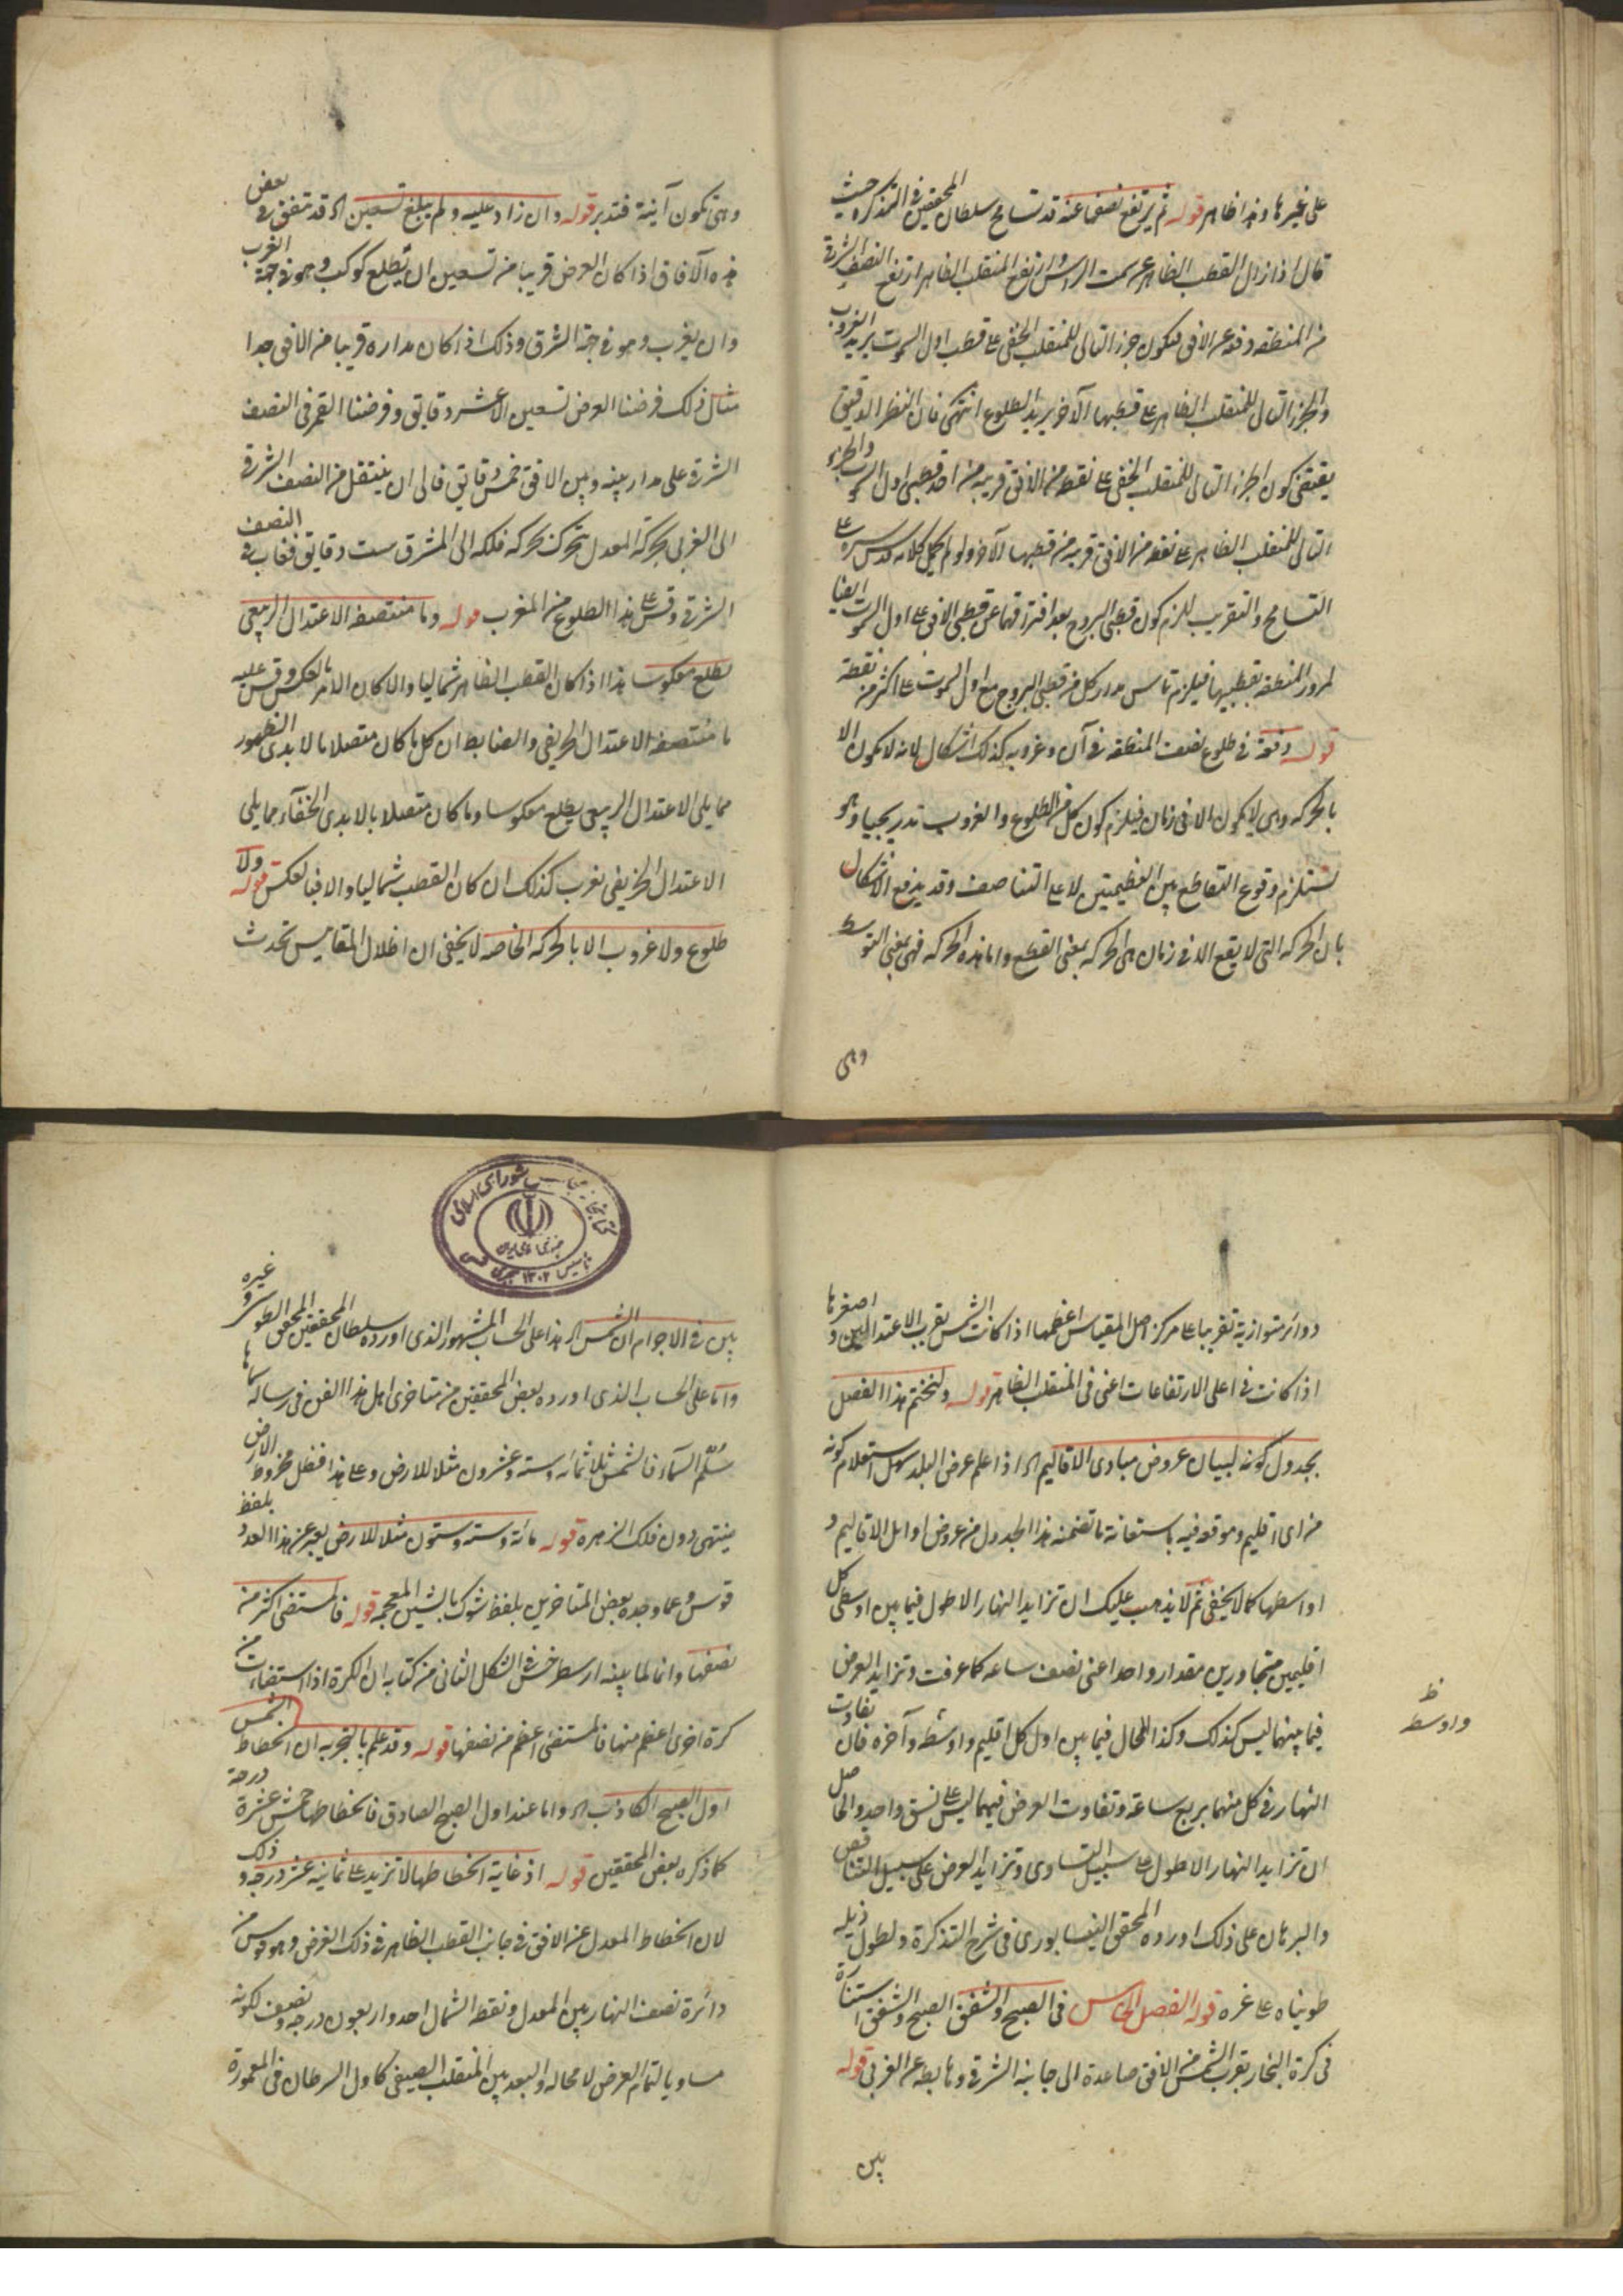 على غيرها وهذا ظاهر قوله ثم يرتفع نصفها عنه قد تسامح سلطان المحققين في التذكرة حيث
قال اذا زال القطب الظاهر عن سمت الراس وارتفع المنقلب الظاهر ارتفع النصف الشرقي
من المنطقة دفعة عن الافق فيكون جزء التالى للمنقلب الخفى على قطب اول السموت يريد الغروب
والجزء التالى للمنقلب الظاهر على قطبها الآخر يريد الطلوع انتهى فان النظر الدقيق
يقتضى كون الجزء التالى للمنقلب الخفى على نقطة من الافق قريبة من احد قطبى اول السموت والجزء
التالى للمنقلب الظاهر على نقطة من الافق قريبة من قطبها الآخر ولو لم يحمل كلامه قدس سره على
التسامح والتقريب لزم كون قطبى البروج بعد افتراقهما عن قطبى الافق على اول السموت ايضا
لمرور المنطقة بقطبيها فيلزم تماس مدار كل من قطبى البروج مع اول السموت على اكثر من نقطة
قوله دفعة في طلوع نصف المنطقة في آن وغروبه كذلك اشكال لانه لا يكون الا
بالحركة وهى لا يكون الا في زمان فيلزم كون كل من الطلوع والغروب تدريجيا وهو
يستلزم وقوع التقاطع بين العظيمتين لا على التناصف وقد يدفع الاشكال
بان الحركة التى لا يقع الا في زمان هى الحركة بمعنى القطع واما هذه الحركة فهى بمعنى التوسط
وهى
وهى تكون آنية فتدبر قوله وان زاد عليه ولم يبلغ تسعين اه قد يتفق في بعض
هذه الآفاق اذا كان العرض قريبا من تسعين ان يطلع كوكب وهو في جهة الغرب
وان يغرب وهو في جهة الشرق وذلك اذا كان مداره قريبا من الافق جدا
مثال ذلك فرضنا العرض تسعين الا عشر دقايق وفرضنا القمر فى النصف
الشرقى على مدار بينه وبين الافق خمس دقايق فالى ان ينتقل من النصف الشرقى
الى الغربى بحركة المعدل يتحرك بحركة فلكه الى المشرق ست دقايق فغاب في النصف
الشرقى وقس على هذا الطلوع من المغرب قوله وما منتصفه الاعتدال الربيعى
يطلع معكوسا هذا اذا كان القطب الظاهر شماليا والا كان الامر بالعكس وقس عليه
ما منتصفه الاعتدال الخريفى والضابط ان كل ما كان متصلا بالابدى الظهور
مما يلى الاعتدال الربيعى يطلع معكوسا وما كان متصلا بالابدى الخفاء مما يلى
الاعتدال الخريفى يغرب كذلك ان كان القطب شماليا والا فبالعكس قوله ولا
طلوع ولا غروب الا بالحركة الخاصة لا يخفى ان اظلال المقاييس تحدث
دوائر متوازية تقريبا على مركز اصل المقياس اعظمها اذا كانت الشمس بقرب الاعتدالين واصغرها
اذا كانت في اعلى الارتفاعات اعنى فى المنقلب الظاهر قوله ولنختم هذا الفصل
بجدول كونه لبيان عروض مبادى الاقاليم اه اذا علم عرض البلد سهل استعلام كونه
من اى اقليم وموقعه فيه باستعانة ما تضمنه هذا الجدول من عروض اوايل الاقاليم و
اواسطها كما لا يخفى ثم لا يذهب عليك ان تزايد النهار الاطول فيما بين اوسطى كل
اقليمين متجاورين مقدار واحد اعنى نصف ساعة كما عرفت وتزايد العرض
فيما بينهما ليس كذلك وكذا الحال فيما بين اول كل اقليم واوسطه وآخره فان تفاوت
ظ
واوسط
النهار في كل منهما بربع ساعة وتفاوت العرض فيهما ليس على نسق واحد والحاصل
ان تزايد النهار الاطول على سبيل التساوى وتزايد العرض على سبيل التناقص
والبرهان على ذلك اورده المحقق النيسابورى فى شرح التذكرة ولطول ذيله
طويناه على غره قوله الفصل الخامس فى الصبح والشفق الصبح والشفق استنارة
فى كرة البخار بقرب الشمس من الافق صاعدة الى جانبه الشرقى وهابطة عن الغربى قوله
بين
كتابخانه مجلس شوراى اسلامى
جمهورى اسلامى ايران
تاسيس ١٣٠٢ هجرى شمسى
بين فى الاجرام ان الشمس اه هذا على الحساب المشهور الذى اورده سلطان المحققين المحقق الطوسى وغيره
واما على الحساب الذى اورده بعض المحققين من متاخرى اهل هذا الفن فى رسالة سماها
سلم السماء فالشمس ثلاثمائة وستة وعشرون مثلا للارض وعلى هذا فظل مخروط الارض
ينتهى دون فلك الزهرة قوله مائة وستة وستون مثلا للارض يعبر عن هذا العدد بلفظ
قوسو وعما وجده بعض المتاخرين بلفظ شوك بالشين المعجمة قوله فالمستضئ اكثر من
نصفها وانما لما بينه ارسطرخس في الشكل الثانى من كتابه ان الكرة اذا استضاءت من
كرة اخرى اعظم منها فالمستضئ اعظم من نصفها قوله وقد علم بالتجربة ان انحطاط الشمس
اول الصبح الكاذب اه واما عند اول الصبح الصادق فانحطاطها خمس عشرة درجة
كما ذكره بعض المحققين قوله اذ غاية انحطاطها لا تزيد على ثمانية عشر درجة وذلك
لان انحطاط المعدل عن الافق في جانب القطب الظاهر في ذلك العرض وهو قوس من
دائرة نصف النهار بين المعدل ونقطة الشمال احد واربعون درجة ونصف لكونه
مساويا لتمام العرض لا محالة والبعد بين المنقلب الصيفى كاول السرطان فى المعمورة